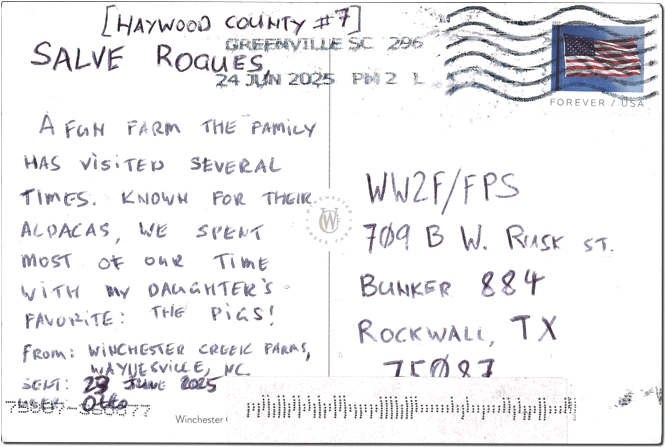 [HAYWOOD COUNTY #7]
SALVE ROGUES,
GREENVILLE SC 296
24 JUN 2025 PM 2 L
FOREVER / USA
A FUN FARM THE FAMILY
HAS VISITED SEVERAL
TIMES. KNOWN FOR THEIR
ALPACAS, WE SPENT
MOST OF OUR TIME
WITH MY DAUGHTER'S
FAVORITE: THE PIGS!
FROM: WINCHESTER CREEK FARMS,
WAYNESVILLE, NC
SENT: 23 JUNE 2025
USER: Otto
WW2F/FPS
709 B W. RUSK ST.
BUNKER 884
ROCKWALL, TX
75087
Winchester